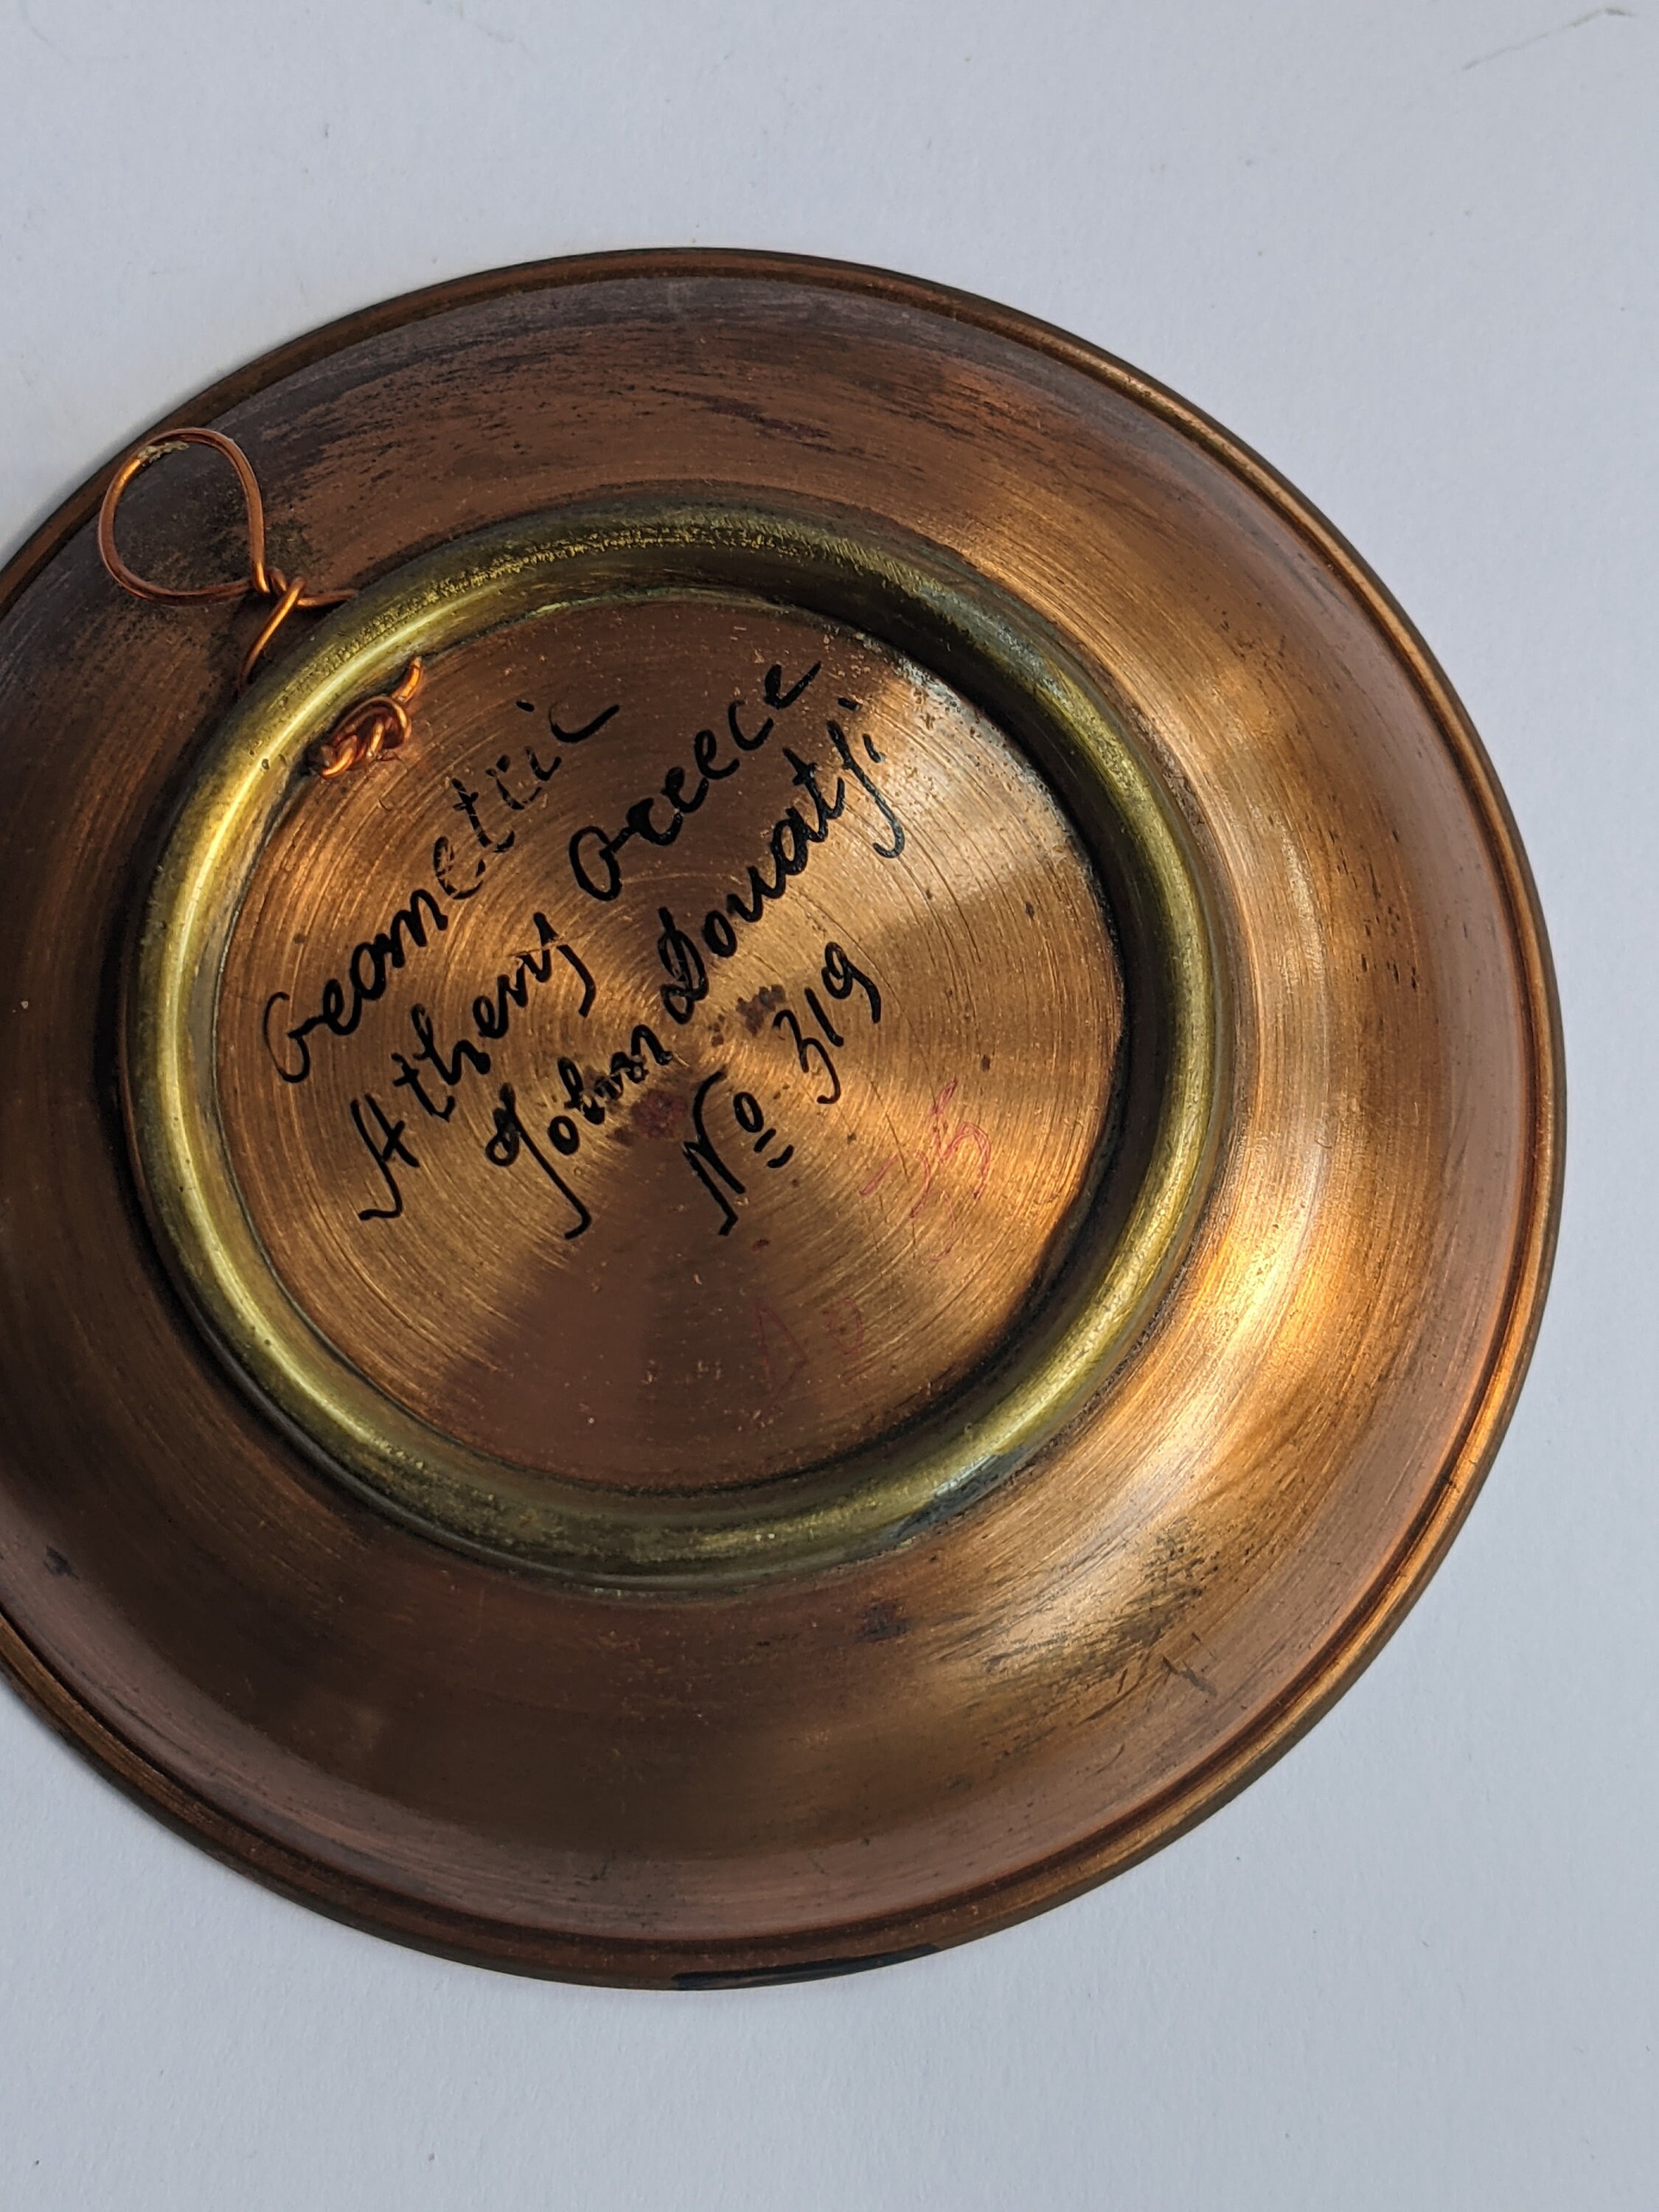 Geometric
Athens Greece
John Donatji
Nº 319